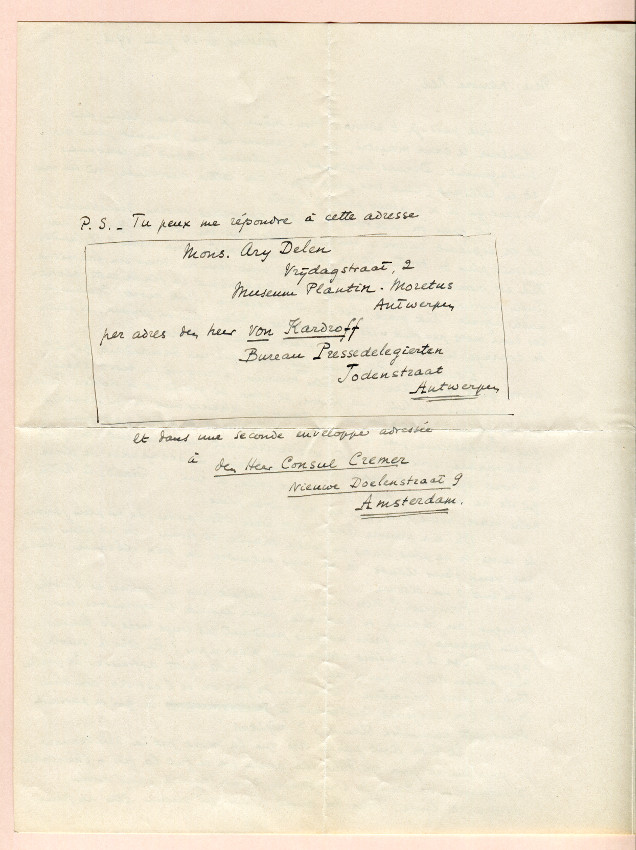 P. S. _ Tu peux me répondre à cette adresse
Mons. Ary Delen
Vrijdagstraat, 2
Museum Plantin - Moretus
Antwerpen
per adres den heer von Kardroff
Bureau Pressedelegierten
Jodenstraat
Antwerpen
et dans une seconde enveloppe adressée
à den Heer Consul Cremer
Nieuwe Doelenstraat 9
Amsterdam.